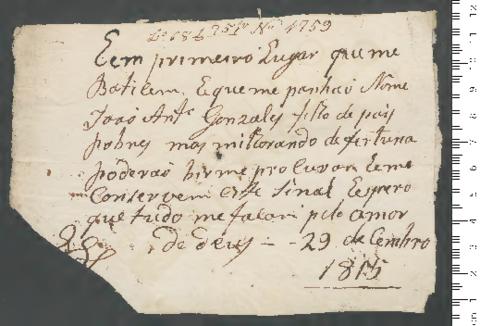 Lº 18 f. 251v Nº 1759
E em primeiro Lugar queme
Batizem, E queme panhaõ Nome
Joaõ Antº Gonzales filho de pais
pobres mas milhorando de fortuna
poderaõ hirme procurar Eeme
Conservem este Sinal Espero
que tudo me façam pelo amor
de deus — 29 de
1815